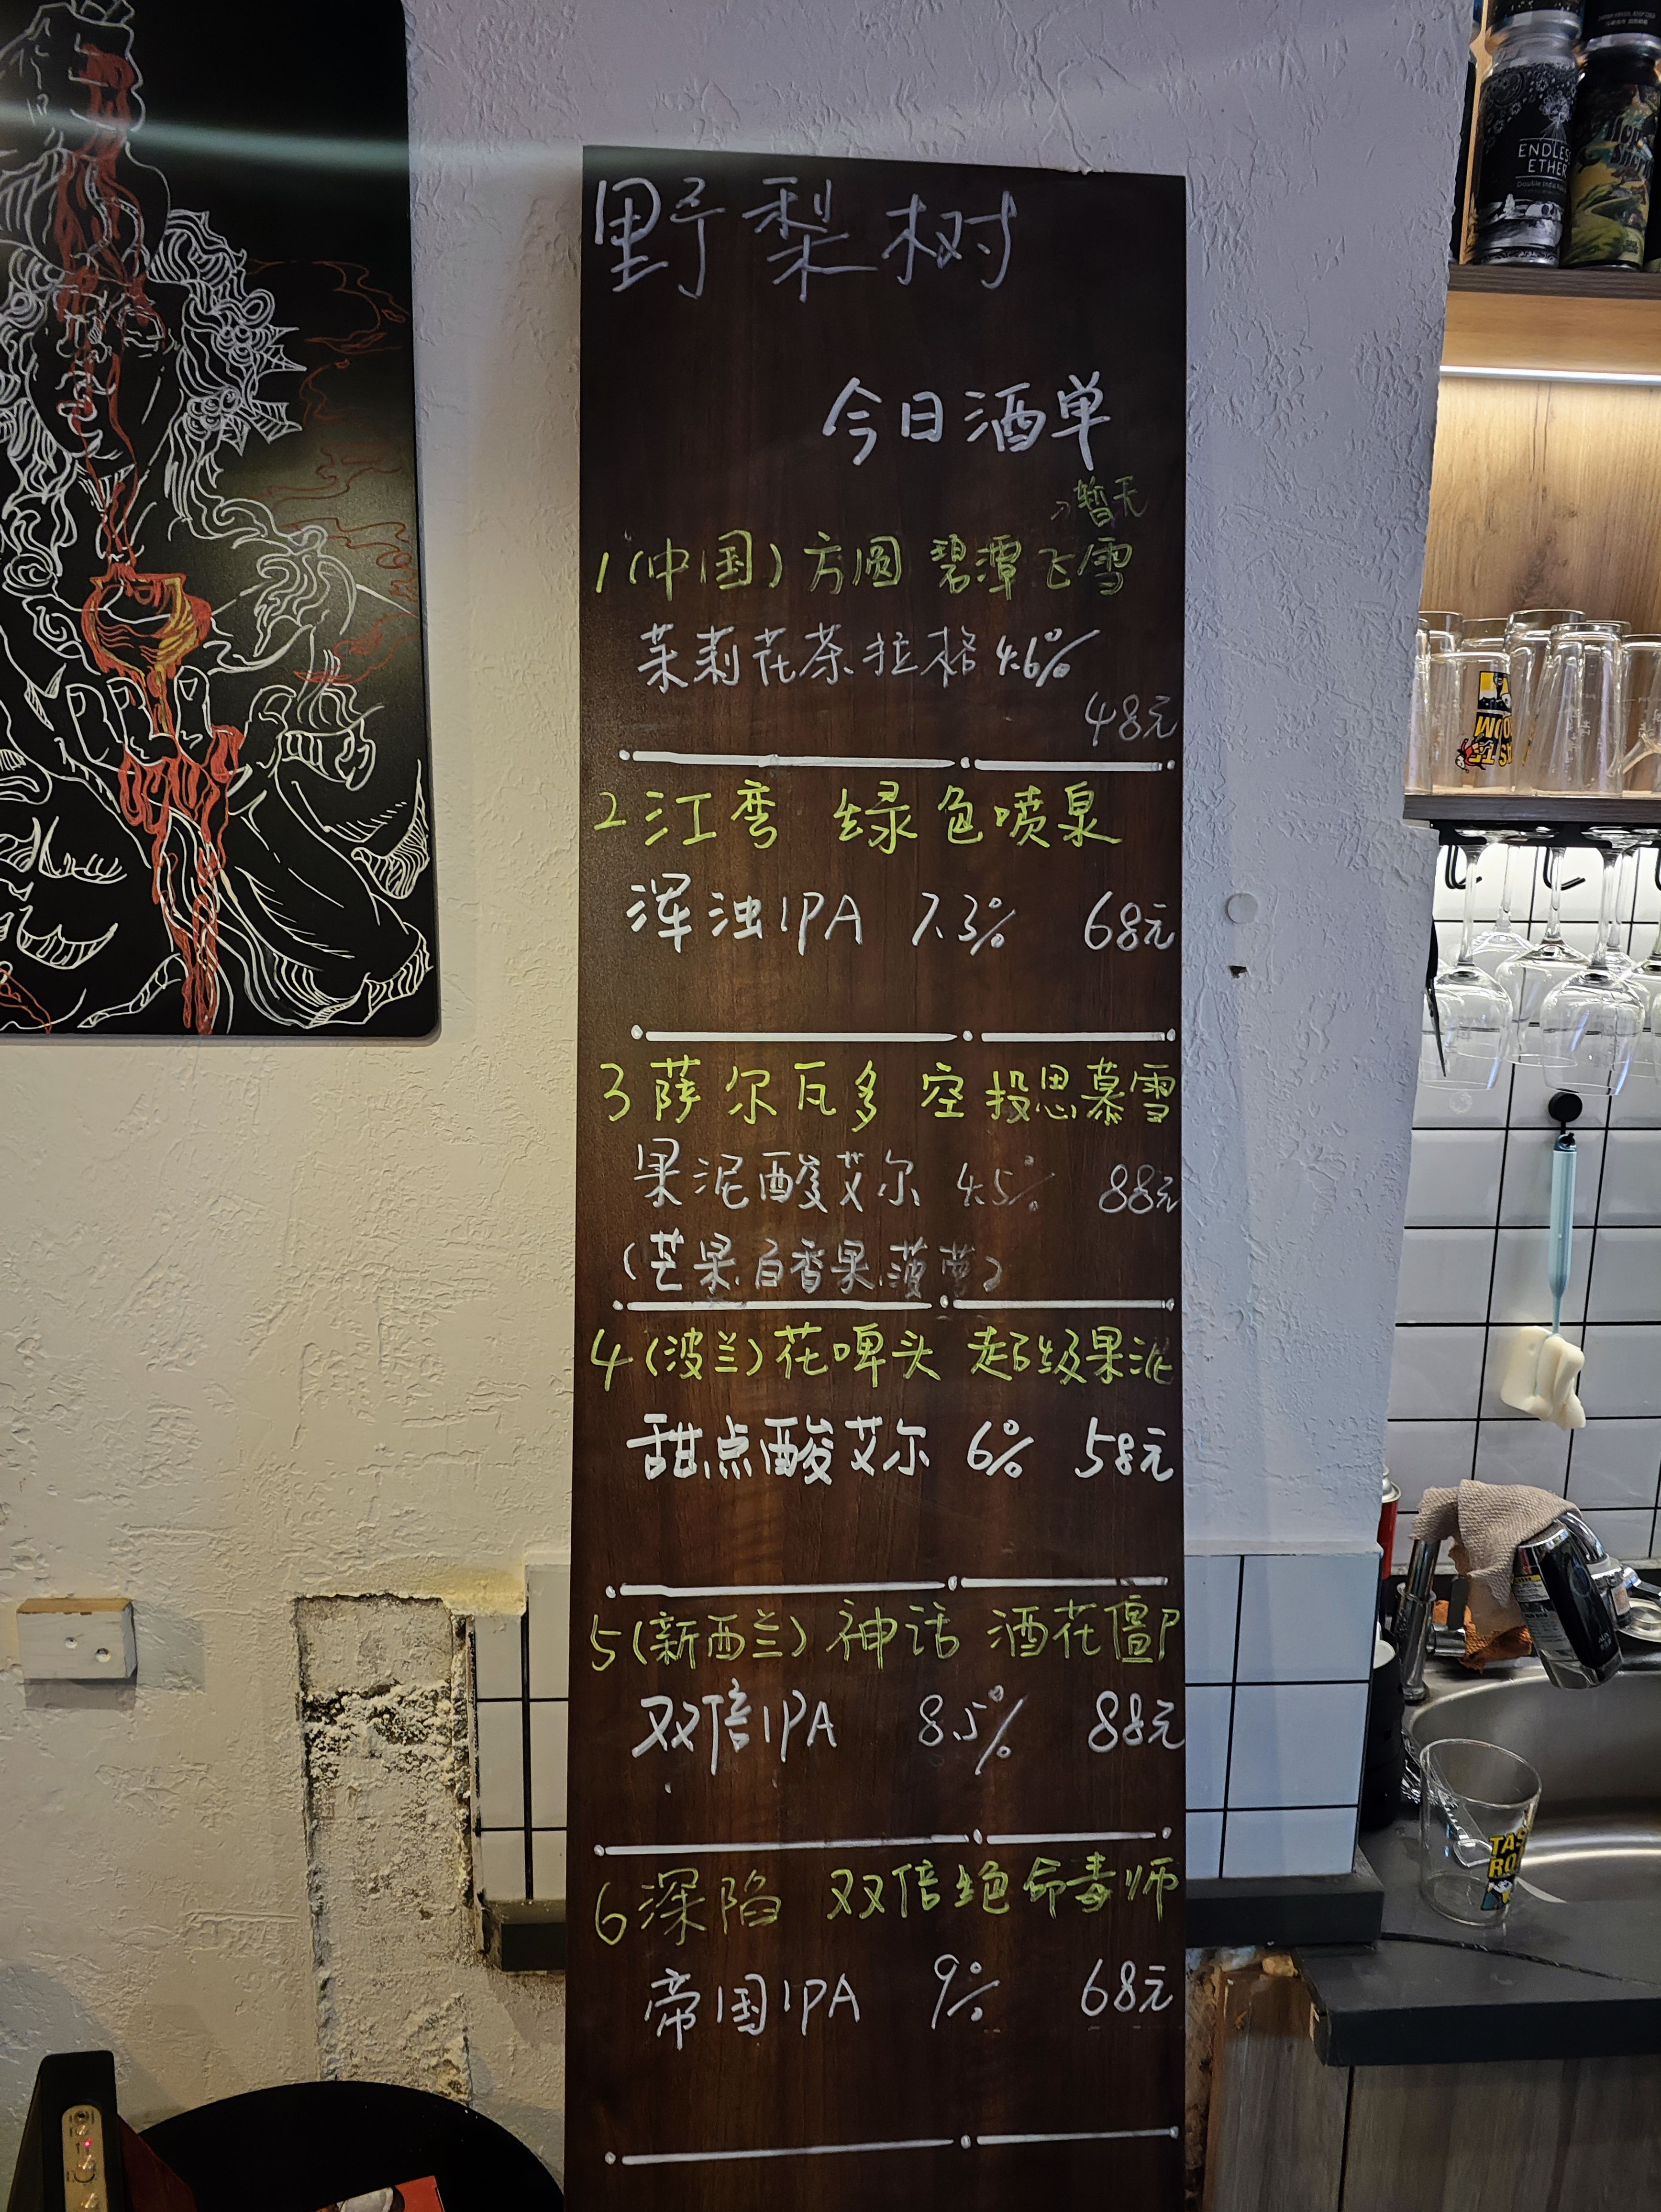 野梨树
今日酒单
→暂无
1(中国)方圆 碧潭飞雪
茉莉花茶拉格 4.6%
48元
2江湾 绿色喷泉
浑浊IPA 7.3% 68元
3萨尔瓦多 空投思慕雪
果泥酸艾尔 4.5% 88元
(芒果.百香果.菠萝)
4(波兰)花啤头 超级果泥
甜点酸艾尔 6% 58元
5(新西兰)神话 酒花僵尸
双倍IPA 8.5% 88元
6深陷 双倍绝命毒师
帝国IPA 9% 68元
ENDLESS
ETHER
Double India Pale
TAS
RO